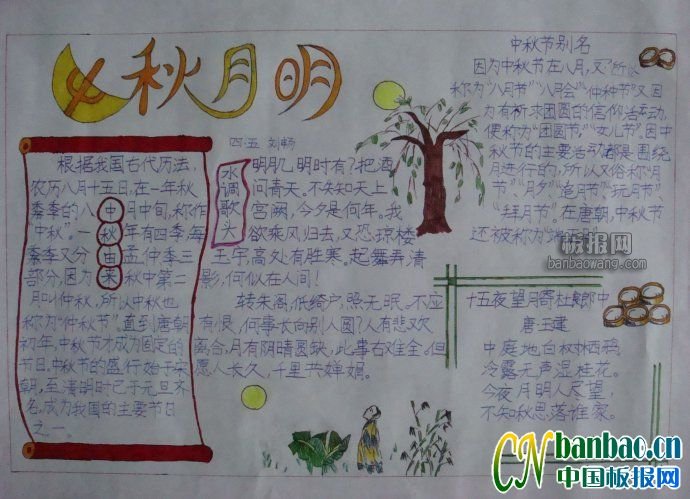 中秋月明
四·五 刘畅
中秋由来
根据我国古代历法,
农历八月十五日,在一年秋
季的八月中旬,称作
"中秋"。一年有四季,每
季又分孟仲季三
部分,因为秋中第二
月叫仲秋,所以中秋也
称为"仲秋节"。直到唐朝
初年,中秋节才成为固定的
节日。中秋节的盛行始于宋
朝,至清明时已于元旦齐
名,成为我国的主要节日
之一。
水调歌头
明月几明时有?把酒
问青天。不知知天上
宫阙,今夕是何年。我
欲乘风归去,又恐琼楼
玉宇高处有胜寒。起舞弄清
影,何似在人间!
转朱阁,低绮户,照无眠。不应
有恨,何事长向别人圆?人有悲欢
离合,月有阴晴圆缺,此事右难全。但
愿人长久,千里共婵娟。
中秋节别名
因为中秋节在八月,又所以
称为"八月节""八月会""仲秋节"又因
为有祈求团圆的信仰活动,
便称为"团圆节""女儿节"。因中
秋节的主要活动都是围绕
月进行的,所以又俗称"月
节""月夕""追月节""玩月节"、
"拜月节"。在唐朝,中秋节
还被称为
板报网
banbaowang.com
十五夜望月寄杜郎中
唐·王建
中庭地白树栖鸦,
冷露无声湿桂花。
今夜月明人尽望,
不知秋思落谁家。
CN banbao.cn
中国板报网